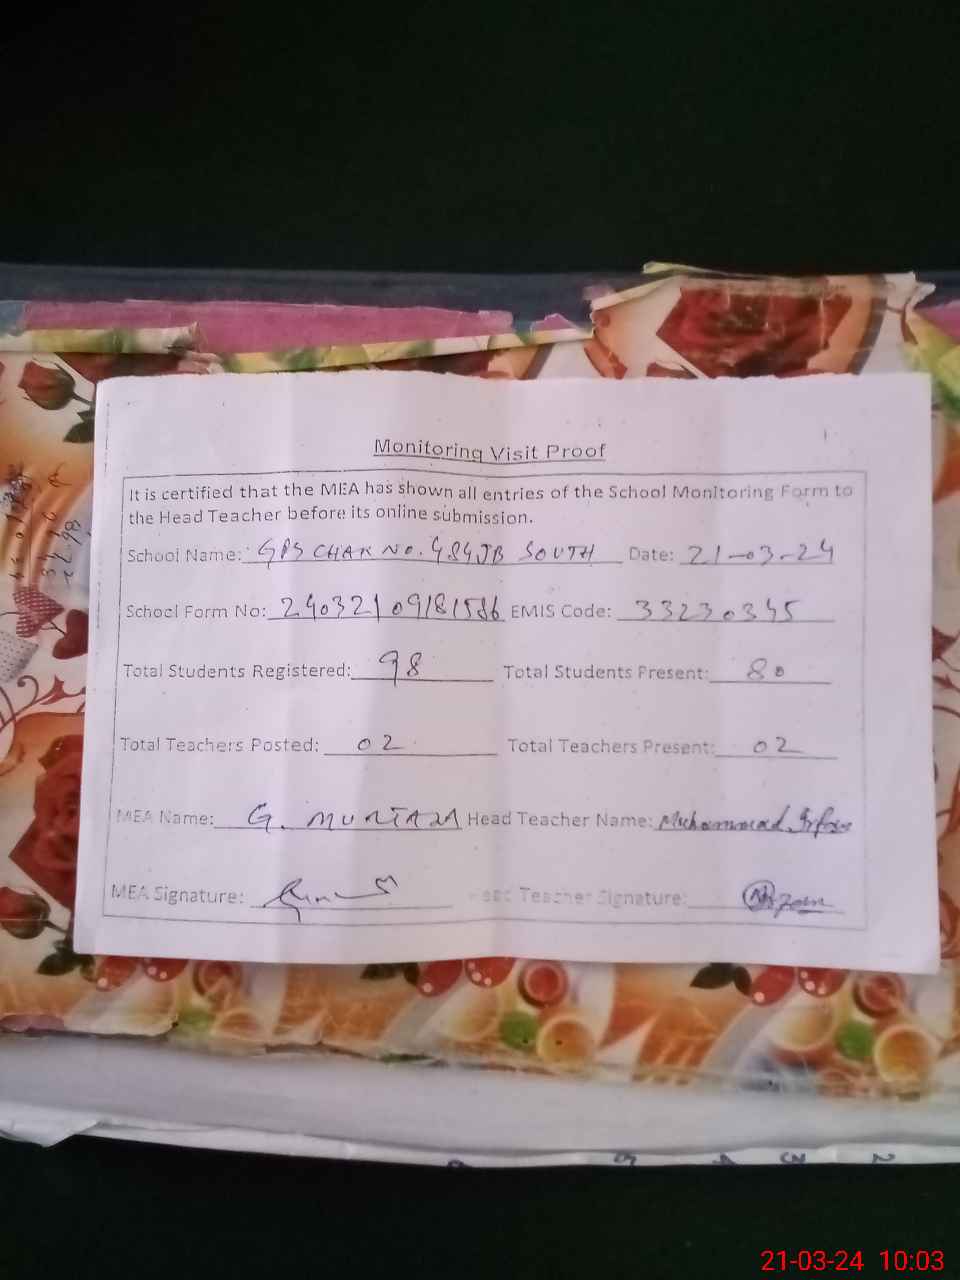 Monitoring Visit Proof
It is certified that the MEA has shown all entries of the School Monitoring Form to
the Head Teacher before its online submission.
School Name: GPS CHAK NO. 484JB SOUTH Date: 21-03-24
School Form No: 24032109181586 EMIS Code: 33230345
Total Students Registered: 98 Total Students Present: 80
Total Teachers Posted: 02 Total Teachers Present: 02
MEA Name: G. MURTAZA Head Teacher Name: Muhammad Irfan
MEA Signature: Head Teacher Signature:
21-03-24 10:03